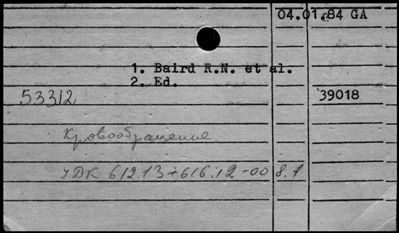 04.01.84 GA
1. Baird R.N. et al.
2. Ed.
53312 39018
Кровообращение
УДК 612.13+616.12-008.1